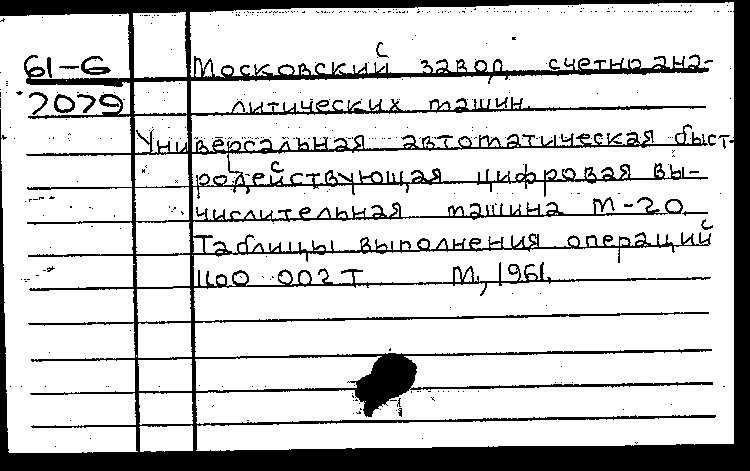 61-6 Московский завод счетно ана-
2079 литических машин
Универсальная автоматическая быст-
родействующая цифровая вы-
числительная машина М-20
Таблицы выполнения операций
1160 002 Т. М., 1961.